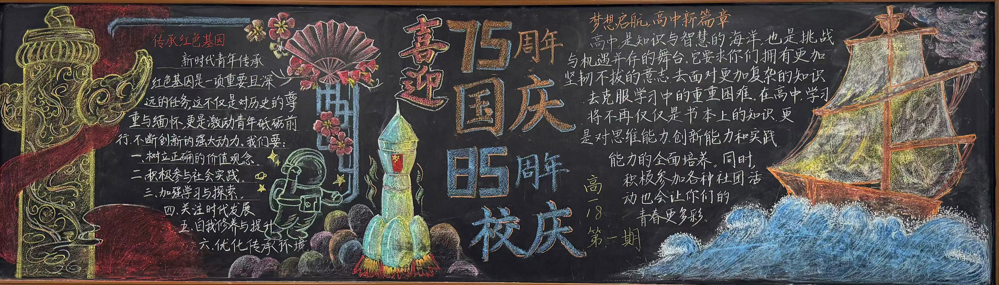 传承红色基因
新时代青年传承
红色基因是一项重要且深
远的任务这不仅是对历史的尊
重与缅怀,更是激动青年砥砺前
行,不断创新的强大动力,我们要:
一.树立正确的价值观念.
二.积极参与社会实践.
三.加强学习与探索
四.关注时代发展
五.自我修养与提升
六.优化传承环境
喜迎
75周年
国庆
85周年
校庆
高一18
第一期
梦想启航,高中新篇章
高中是知识与智慧的海洋,也是挑战
与机遇并存的舞台,它要求你们拥有更加
坚韧不拔的意志去面对更加复杂的知识
去克服学习中的重重困难.在高中,学习
将不再仅仅是书本上的知识,更
是对思维能力,创新能力和实践
能力的全面培养.同时,
积极参加各种社团活
动也会让你们的
青春更多彩.